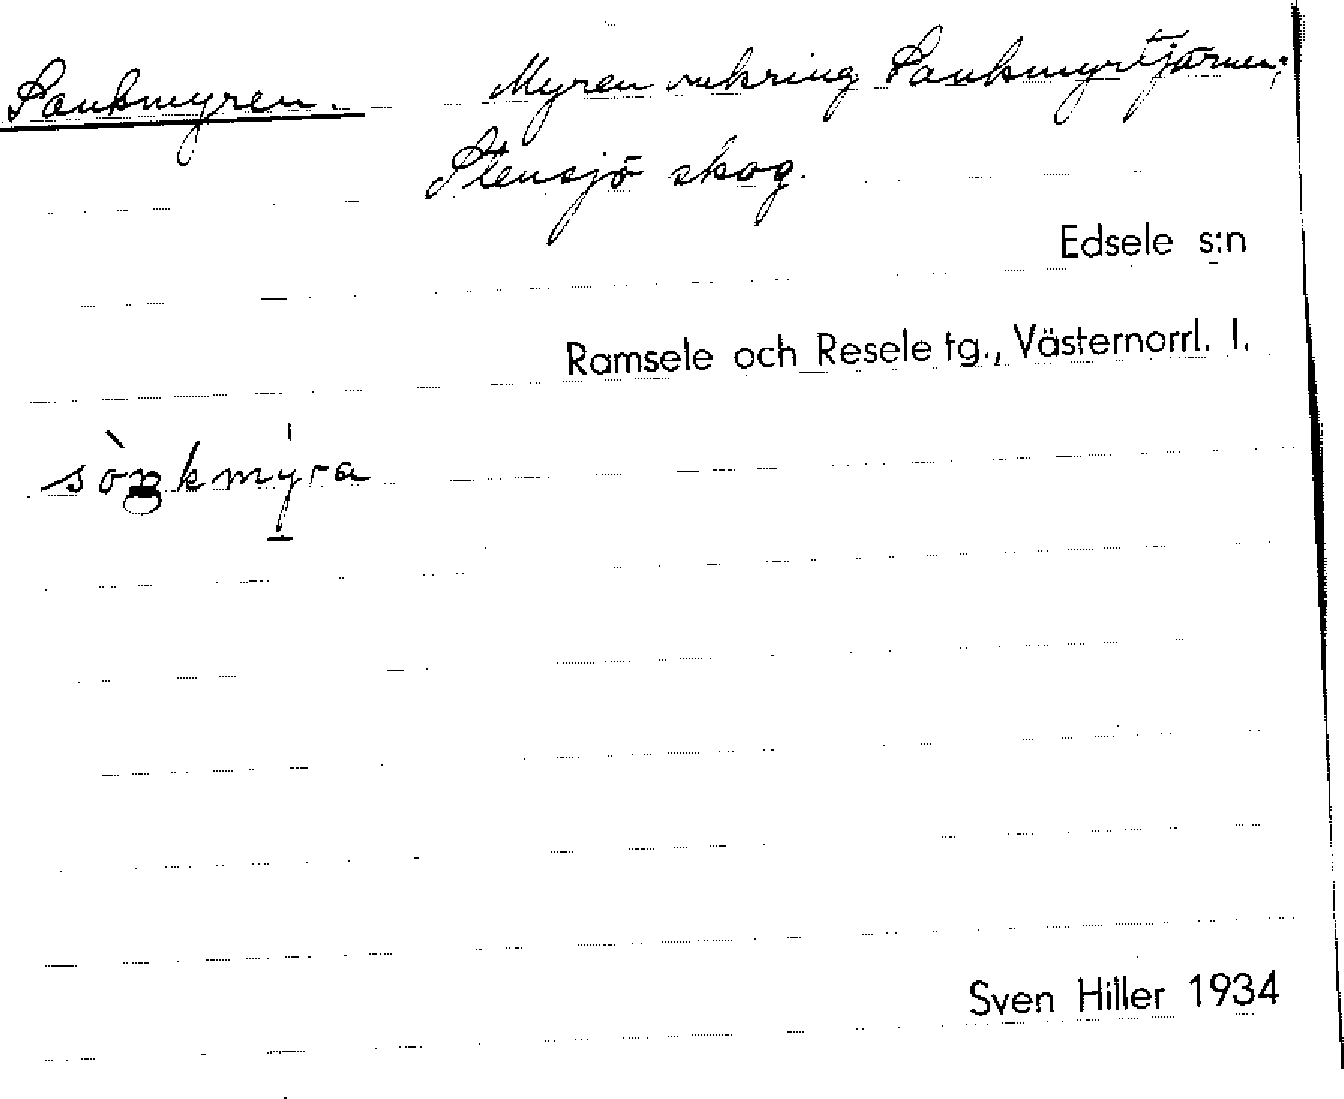 Sankmyren. Myren omkring Sankmyrtjärnen;
Stensjö skog.
Edsele s:n
Ramsele och Resele tg., Västernorrl. l.
sònkmy̱ra
Sven Hiller 1934